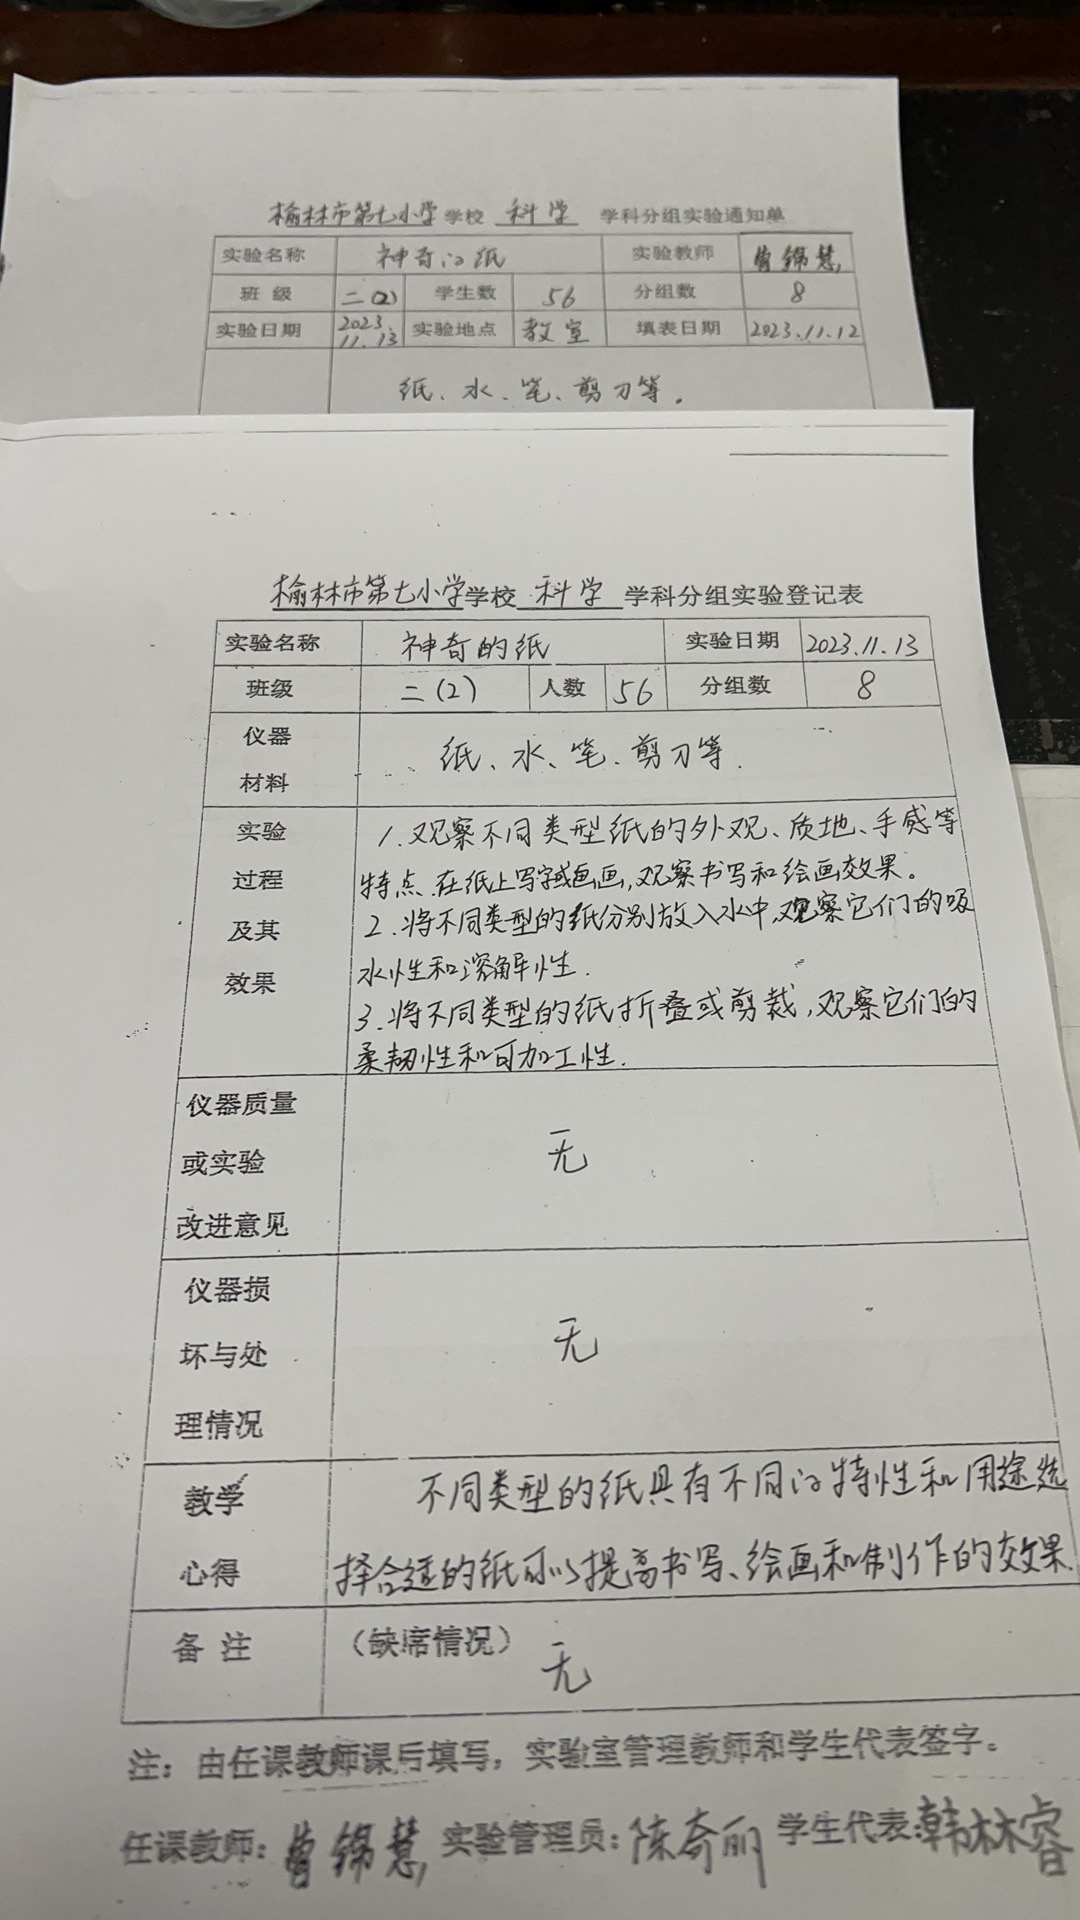 榆林市第七小学学校 科学 学科分组实验通知单
实验名称 神奇的纸 实验教师 曾锦慧
班 级 二(2) 学生数 56 分组数 8
实验日期 2023.11.13 实验地点 教室 填表日期 2023.11.12
纸、水、笔、剪刀等.
榆林市第七小学学校 科学 学科分组实验登记表
实验名称 神奇的纸 实验日期 2023.11.13
班级 二(2) 人数 56 分组数 8
仪器
材料
纸、水、笔、剪刀等.
实验
过程
及其
效果
1.观察不同类型纸的外观、质地、手感等
特点.在纸上写字或画画,观察书写和绘画效果。
2.将不同类型的纸分别放入水中,观察它们的吸
水性和溶解性.
3.将不同类型的纸折叠或剪裁,观察它们的
柔韧性和可加工性.
仪器质量
或实验
改进意见
无
仪器损
坏与处
理情况
无
教学
心得
不同类型的纸具有不同的特性和用途选
择合适的纸可以提高书写、绘画和制作的效果.
备 注 (缺席情况) 无
注:由任课教师课后填写,实验室管理教师和学生代表签字。
任课教师:曾锦慧 实验管理员:陈奇丽 学生代表:韩林睿